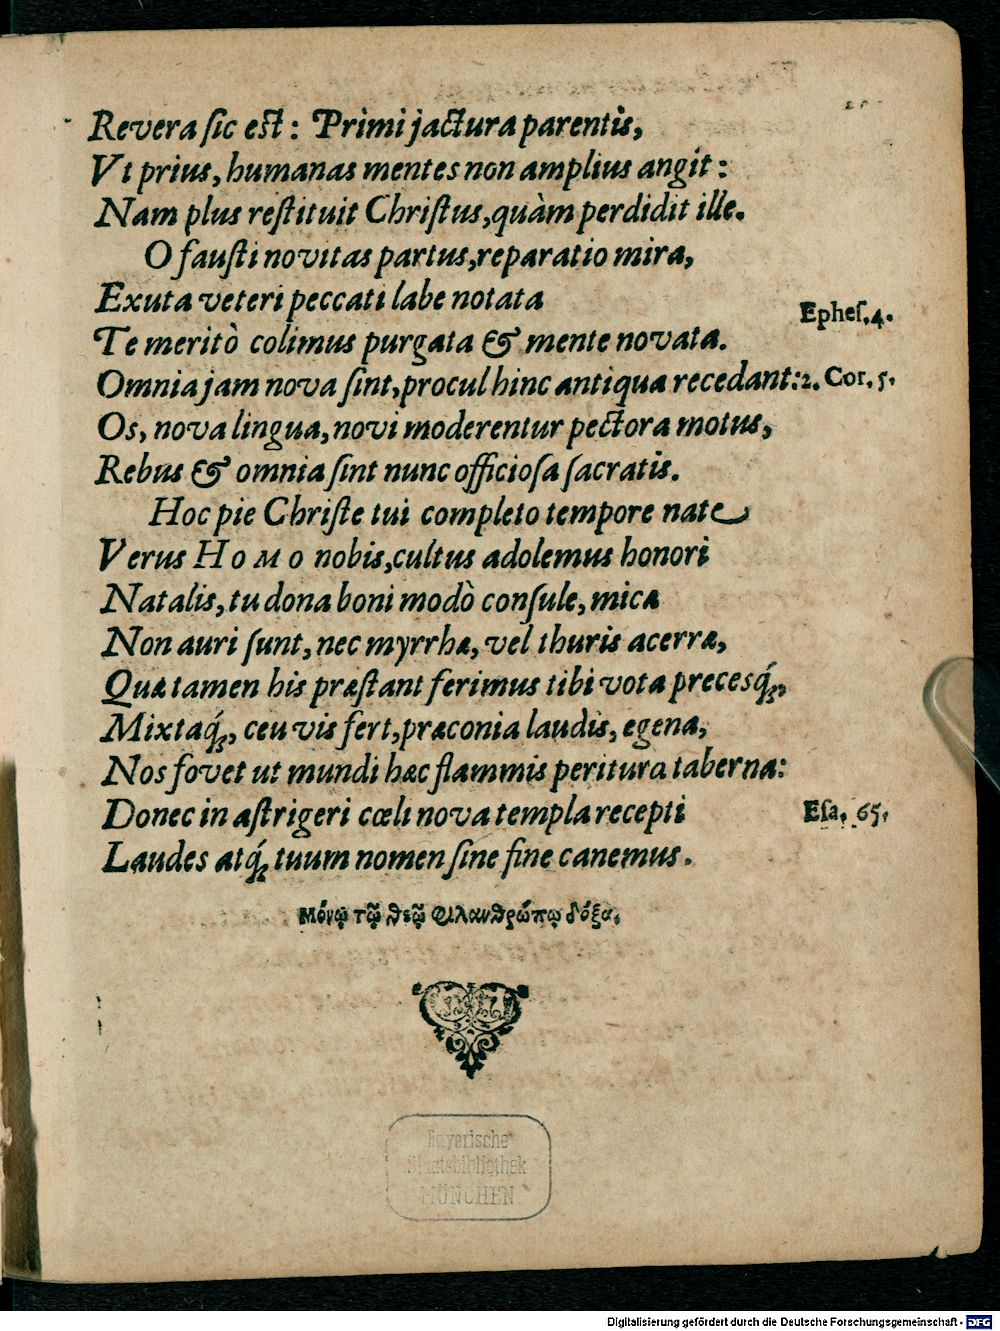 Revera ſic eſt: Primi jactura parentis,
Vt prius, humanas mentes non amplius angit:
Nam plus reſtituit Chriſtus, quàm perdidit ille.
O fauſti novitas partus, reparatio mira,
Exuta veteri peccati labe notata
Epheſ. 4.
Te meritò colimus purgata & mente novata.
Omnia jam nova ſint, procul hinc antiqua recedant: 2. Cor. 5.
Os, nova lingua, novi moderentur pectora motus,
Rebus & omnia ſint nunc officioſa ſacratis.
Hoc pie Chriſte tui completo tempore nate
Verus HOMO nobis, cultus adolemus honori
Natalis, tu dona boni modò conſule, micæ
Non auri ſunt, nec myrrhæ, vel thuris acerræ,
Quæ tamen his præſtant ferimus tibi vota precesq́;,
Mixtaq́;, ceu vis fert, præconia laudis, egena,
Nos fovet ut mundi hæc flammis peritura taberna:
Donec in aſtrigeri cœli nova templa recepti Eſa. 65.
Laudes atq́; tuum nomen ſine fine canemus.
Μόνῳ τῷ θεῷ Φιλανθρώπῳ δόξα.
Bayerische
Staatsbibliothek
MÜNCHEN
Digitalisierung gefördert durch die Deutsche Forschungsgemeinschaft - DFG